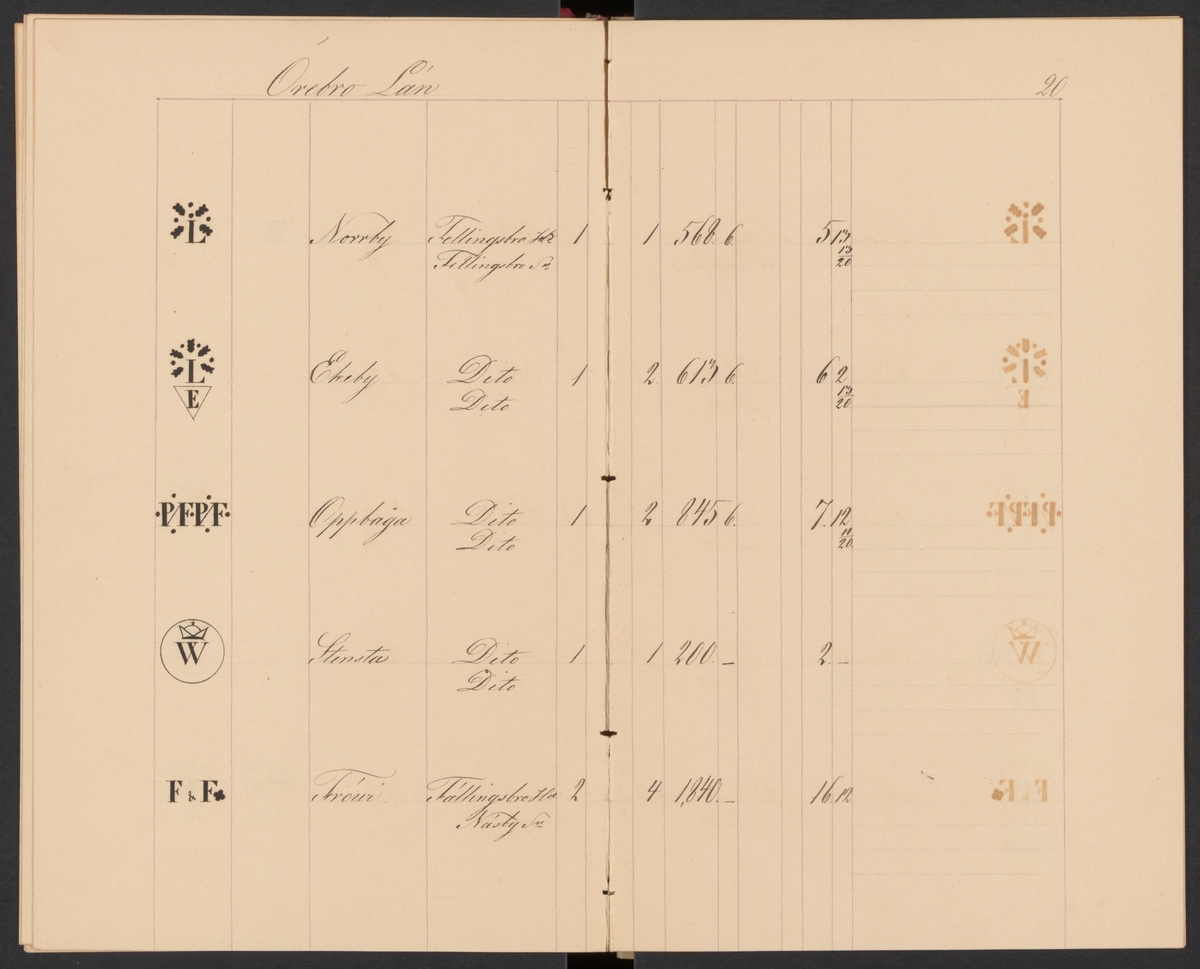 Örebro Län 20
L Norrby Fellingsbro Hd 1 1 568. 6. 5 13
Fellingsbro Sn 13/20
L Ekeby Dito 1 2. 613 6. 6 2
E Dito 13/20
P/FP/F Oppbåga Dito 1 2 845 6. 7. 12
Dito 11/20
W Stensta Dito 1 1 200. – 2. –
Dito
F & F Frövi Fällingsbro Hd 2 4 1,840. – 16. 12
Näsby Sn